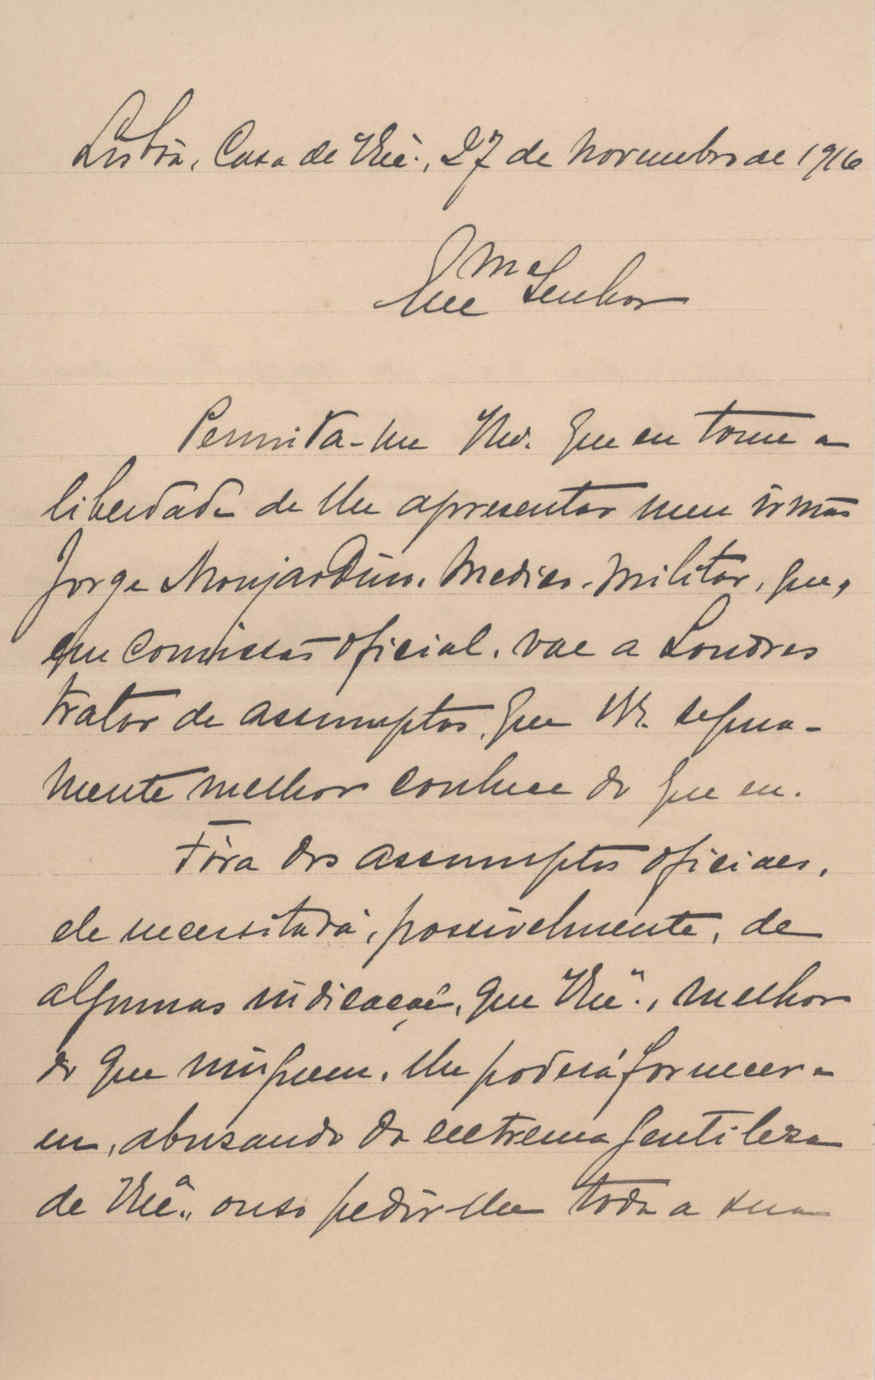 Lisbôa, Casa de V. Exª., 27 de Novembro de 1916
Exmo Senhor
Permita-me V. Exª. que eu tome a
liberdade de lhe apresentar meu irmão
Jorge Monjardino, Medico-militar, que,
em comissão oficial, vae a Londres
tratar de assumptos, que V. Exª. segura-
mente melhor conhece do que eu.
Fóra dos assumptos oficiaes,
ele necessitará, possivelmente, de
algumas indicações, que V. Exª., melhor
do que ninguem, lhe poderá fornecer e
eu, abusando da extrema gentileza
de V. Exª., ouso pedir-lhe toda a sua